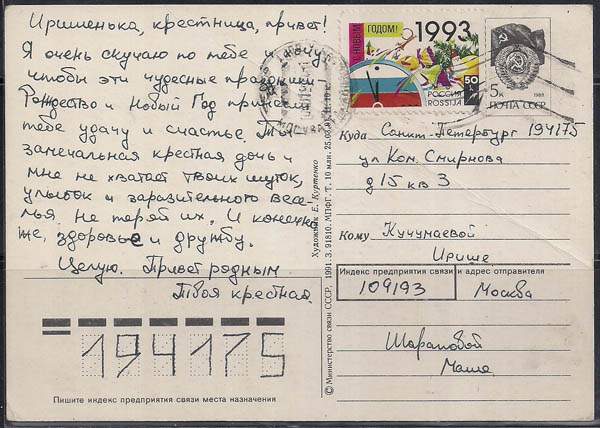 Иришенька, крестница, привет!
Я очень скучаю по тебе и хочу,
чтобы эти чудесные праздники-
Рождество и Новый Год принесли
тебе удачу и счастье. Ты
замечальная крестная дочь и
мне не хватает твоих шуток,
улыбок и заразительного весе-
лья. Не теряй их. И конечно
же, здоровье и дружбу.
Целую. Привет родным
Твоя крестная.
194175
Пишите индекс предприятия связи места назначения
© Министерство связи СССР, 1991. З. 91810. МПФГ. Т. 10 млн. 25.03.91. Ц. 10 к.
Художник Е. Куртенко
С НОВЫМ ГОДОМ!
1993
50
РОССИЯ
ROSSIJA
5к
1988
ПОЧТА СССР
Куда Санкт-Петербург 194175
ул Ком. Смирнова
д 15 кв 3
Кому Кучумаевой
Ирише
Индекс предприятия связи и адрес отправителя
109193 Москва
Шараповой
Маше